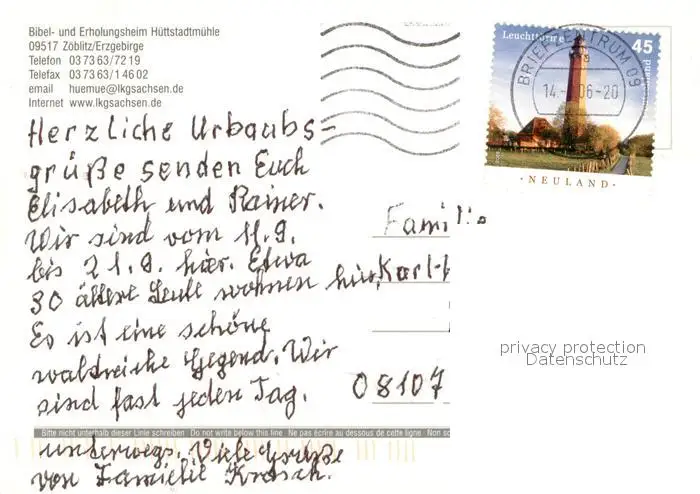 Bibel- und Erholungsheim Hüttstadtmühle
09517 Zöblitz/Erzgebirge
Telefon 0 37 63/72 19
Telefax 0 37 63/1 46 02
email huemue@lkgsachsen.de
Internet www.lkgsachsen.de
Leuchttürme 45
BRIEFZENTRUM 09
14. 06-20
NEULAND
Herzliche Urlaubs-
grüße senden Euch
Elisabeth und Rainer.
Wir sind vom 11.9.
bis 21.9. hier. Etwa
30 ältere Leute wohnen hier.
Es ist eine schöne
waldreiche Gegend. Wir
sind fast jeden Tag.
Bitte nicht unterhalb dieser Linie schreiben Do not write below this line Ne pas écrire au dessous de cette ligne
unterwegs. Viele Grüße
von Familie
Familie
Karl-
08107
privacy protection
Datenschutz